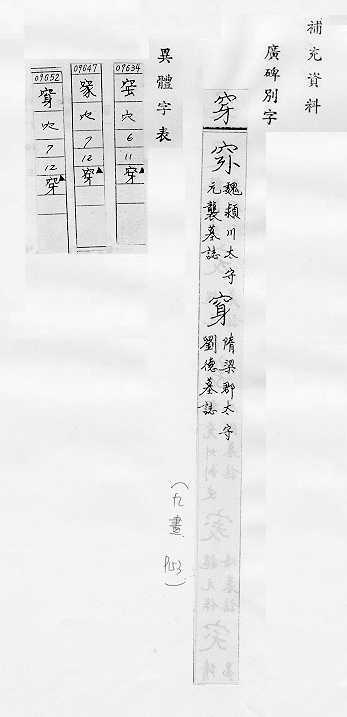 補充資料
廣碑別字
穿
魏潁川太守
元襲墓誌
隋梁郡太守
劉德墓誌
(九畫 P153)
異體字表
09634
穴
6
11
穿
09647
穴
7
12
穿
09652
穴
7
12
穿